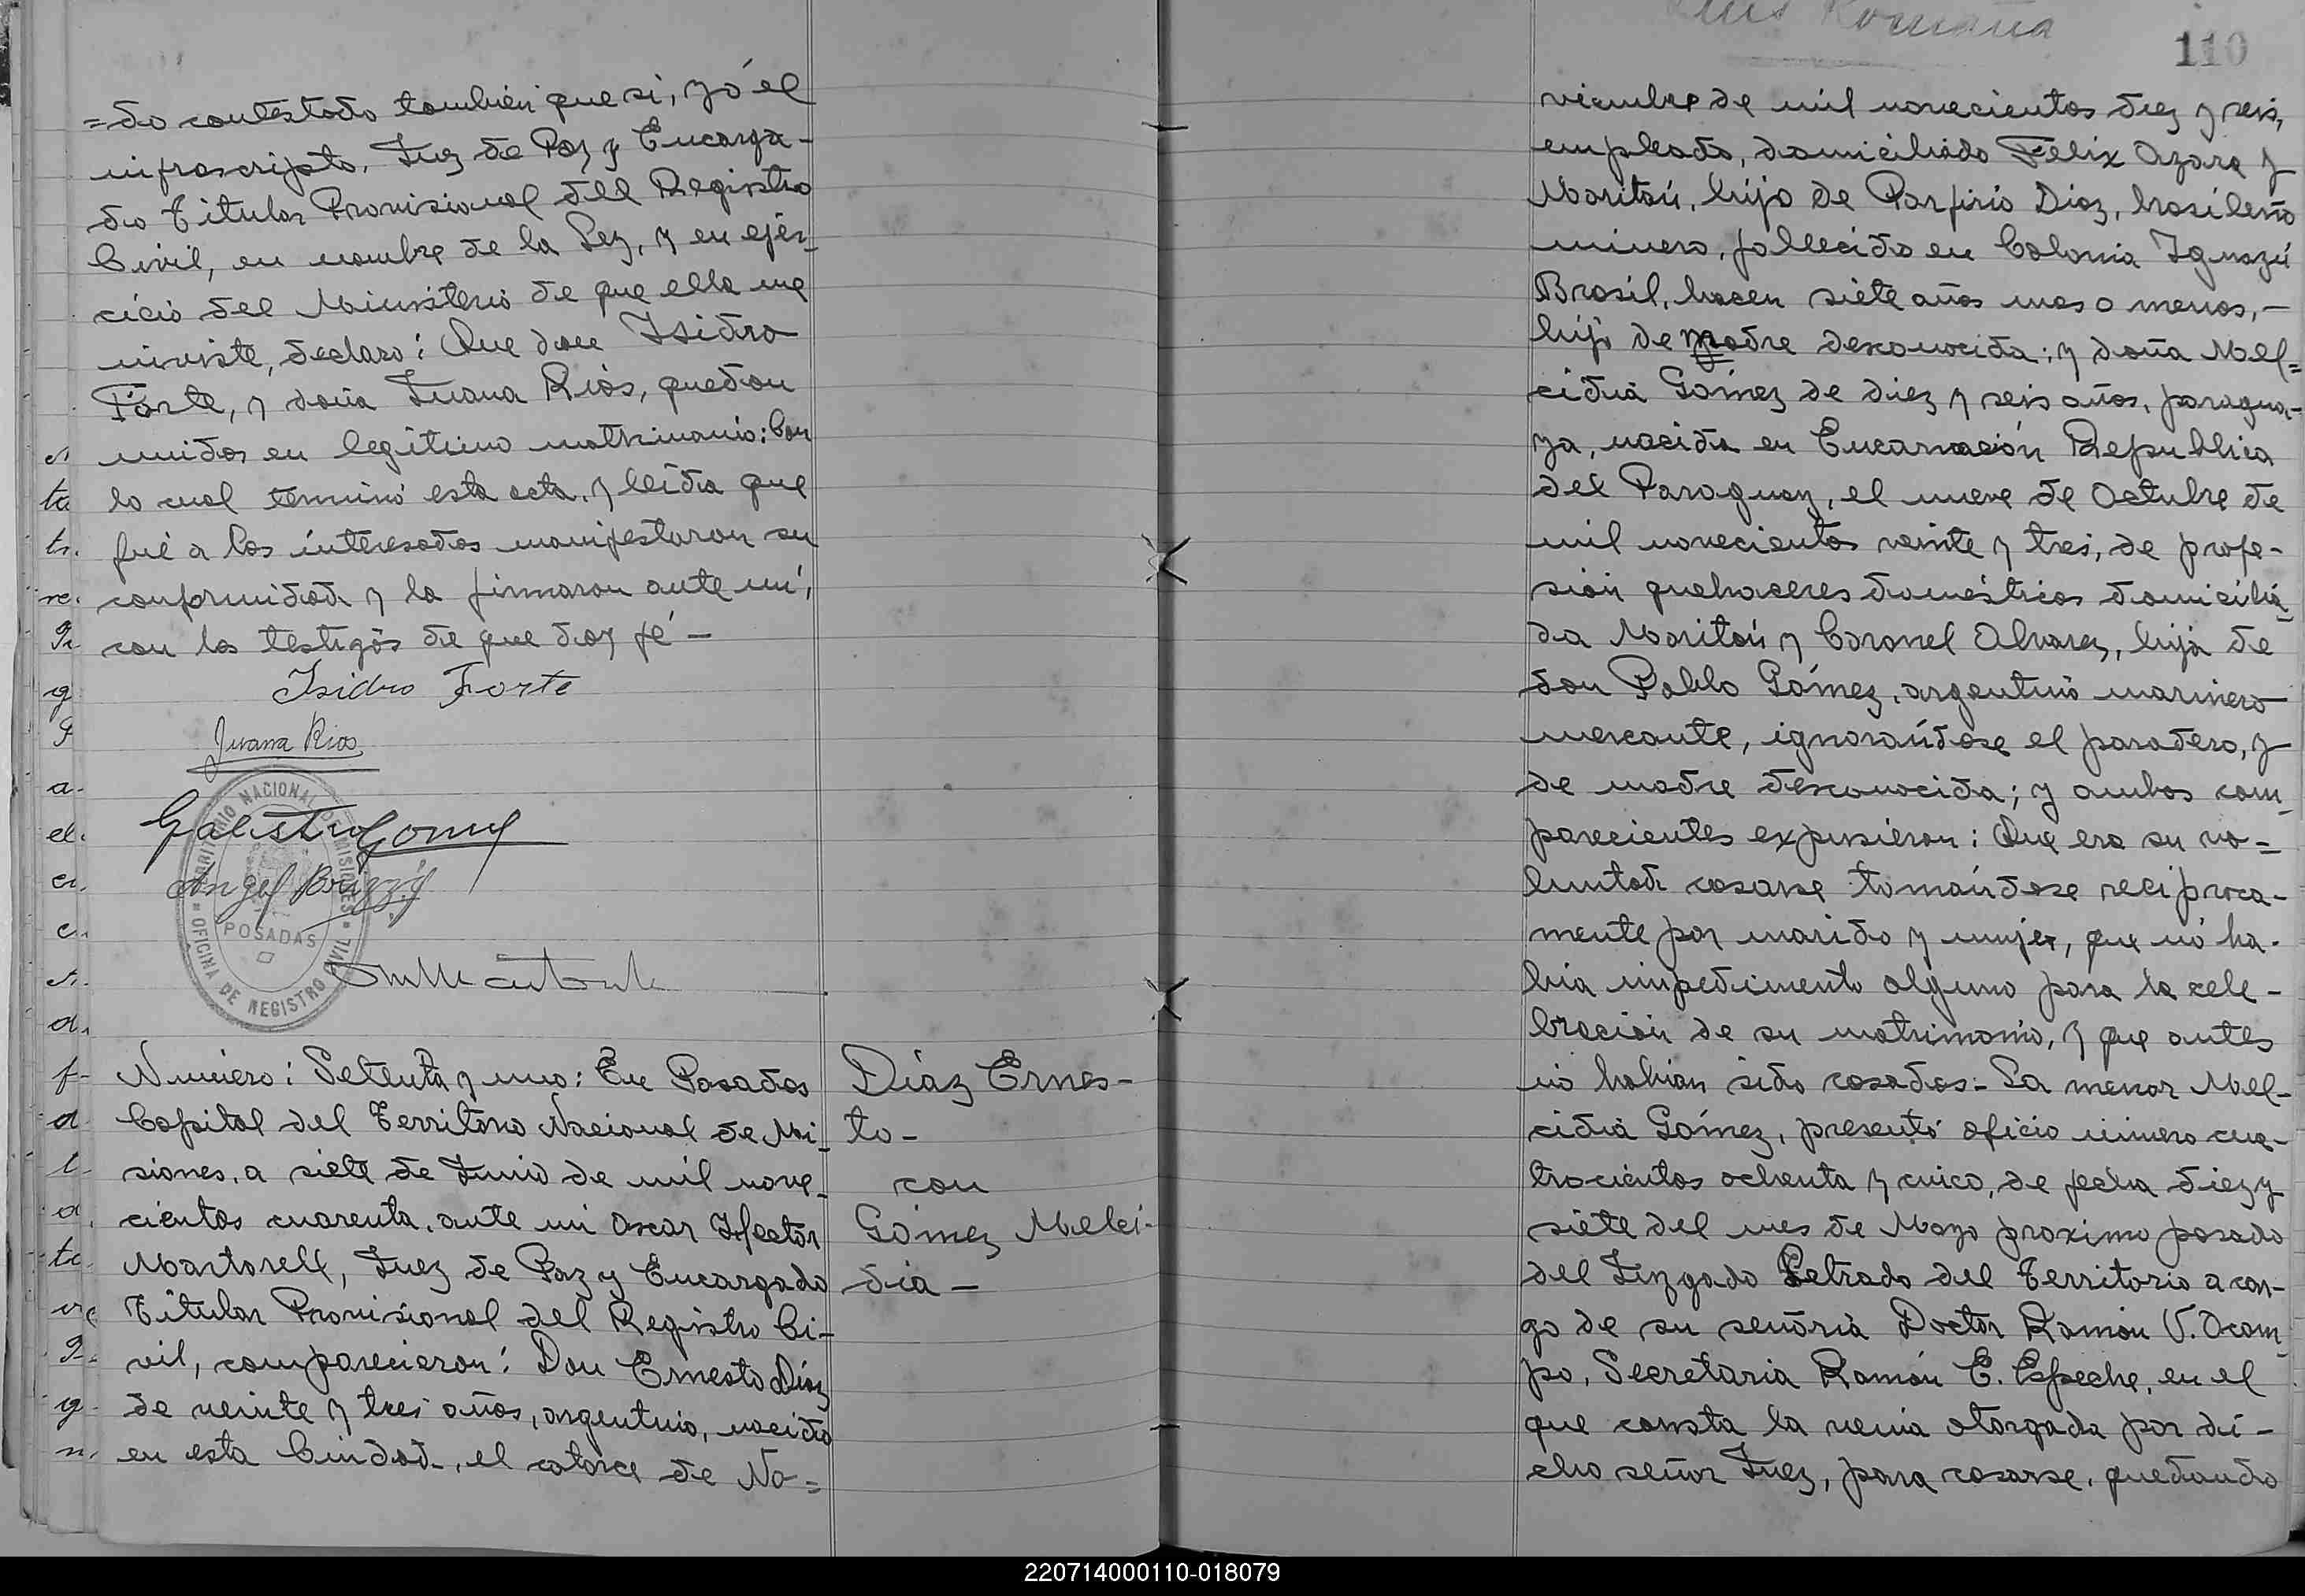 =do contestado también que si, yó el
infrascripto, Juez de Paz y Encarga-
do Titular Provisional del Registro
Civil, en nombre de la Ley, y en ejer-
cicio del Ministerio de que ella me
inviste, declaro: Que don Isidro
Forte, y doña Juana Rios, quedan
unidos en legítimo matrimonio: Con
lo cual terminó esta acta, y leida que
fué a los interesados manifestaron su
conformidad y la firmaron ante mi,
con los testigos de que doy fé —
Isidro Forte
Juana Rios
TERRITORIO NACIONAL DE MISIONES
Angel
POSADAS
OFICINA DE REGISTRO CIVIL
Número: Setenta y uno: En Posadas
Capital del Territorio Nacional de Mi-
siones, a siete de Junio de mil nove-
cientos cuarenta, ante mi Oscar Hector
Martorell, Juez de Paz y Encargado
Titular Provisional del Registro Ci-
vil, comparecieron: Don Ernesto Díaz
de veinte y tres años, argentino, nacido
en esta Ciudad, el catorce de No=
Díaz Ernes-
to-
con
Gómez Melci-
dia —
Luis Romaña
110
viembre de mil novecientos diez y seis,
empleado, domiciliado Felix Azara y
Maritań, hijo de Porfirio Diaz, brasileño
minero, fallecido en Colonia Iguazú
Brasil, hacen siete años mas o menos,—
hijo de madre desconocida; y doña Mel=
cidia Gómez de diez y seis años, paragua-
ya, nacida en Encarnación Republica
del Paraguay, el nueve de Octubre de
mil novecientos veinte y tres, de profe-
sión quehaceres domésticos domicilia-
da Maritań y Coronel Alvarez, hija de
don Pablo Gómez, argentino marinero
mercante, ignorándose el paradero, y
de madre desconocida; y ambos com-
parecientes expusieron: Que era su vo=
luntad casarse tomándose reciproca-
mente por marido y mujer, que nó ha-
bia impedimento alguno para la cele-
bración de su matrimonio, y que antes
nó habian sido casados.- La menor Mel-
cidia Gómez, presentó oficio número cua-
trocientos ochenta y cinco, de fecha diez y
siete del mes de Mayo proximo pasado
del Juzgado Letrado del Territorio a car-
go de su señoria Doctor Ramón V. Ocam-
po, Secretaria Ramón E. Espeche, en el
que consta la venia otorgada por di-
cho señor Juez, para casarse, quedando
220714000110-018079